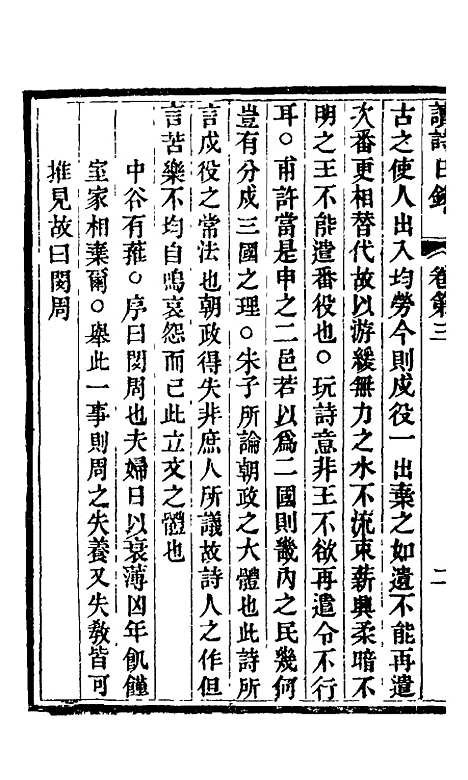 讀詩日錄 卷第三 二
古之使人出入均勞今則戍役一出棄之如遺不能再遣
次番更相替代故以游緩無力之水不流束薪興柔暗不
明之王不能遣番役也○玩詩意非王不欲再遣令不行
耳○甫許當是申之二邑若以爲二國則畿內之民幾何
豈有分戍三國之理○朱子所論朝政之大體也此詩所
言戍役之常法也朝政得失非庶人所議故詩人之作但
言苦樂不均自鳴哀怨而已此立文之體也
中谷有蓷○序曰閔周也夫婦日以衰薄凶年飢饉
室家相棄爾○舉此一事則周之失養又失敎皆可
推見故曰閔周